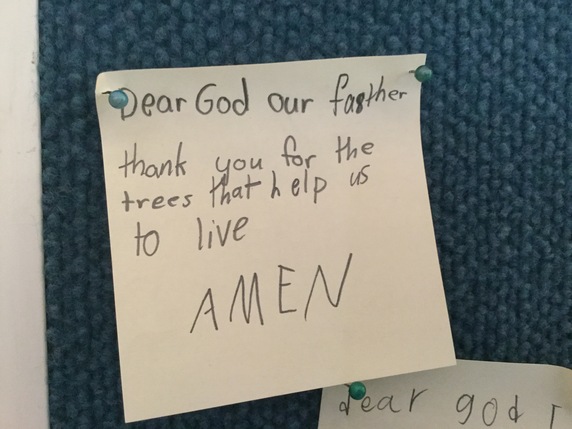 Dear God our fasther
thank you for the
trees that help us
to live
AMEN
dear god